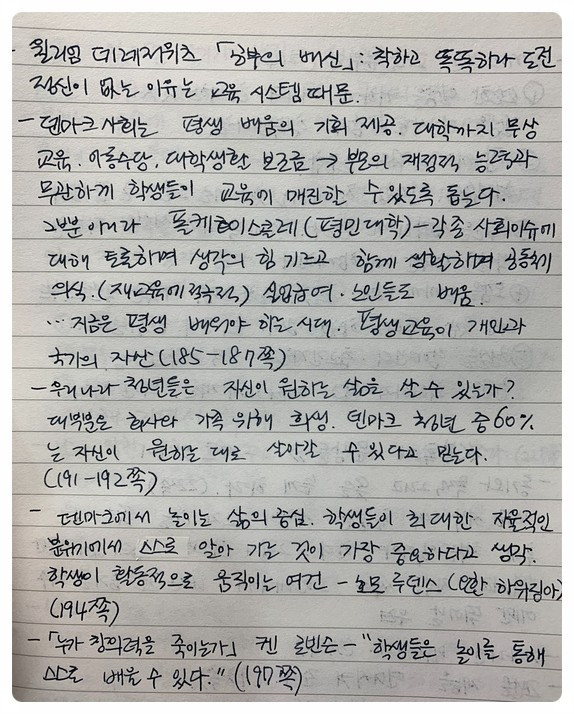 - 윌리엄 데레저위츠 「공부의 배신」: 착하고 똑똑하나 도전
정신이 없는 이유는 교육 시스템 때문.
- 덴마크 사회는 평생 배움의 기회 제공. 대학까지 무상
교육. 아동수당. 대학생활 보조금 → 부모의 재정적 능력과
무관하게 학생들이 교육에 매진할 수 있도록 돕는다.
그뿐 아니라 폴케호이스콜레(평민대학) - 각종 사회이슈에
대해 토론하며 생각의 힘 기르고 함께 생활하며 공동체
의식. (재교육에 적극적) 실업급여. 노인들도 배움
… 지금은 평생 배워야 하는 시대. 평생교육이 개인과
국가의 자산 (185-187쪽)
- 우리나라 청년들은 자신이 원하는 삶을 살 수 있는가?
대부분은 회사와 가족 위해 희생. 덴마크 청년 중 60%
는 자신이 원하는 대로 살아갈 수 있다고 믿는다.
(191-192쪽)
- 덴마크에서 놀이는 삶의 중심. 학생들이 최대한 자율적인
분위기에서 스스로 알아 가는 것이 가장 중요하다고 생각.
학생이 활동적으로 움직이는 여건 - 호모 루덴스 (요한 하위징아)
(194쪽)
- 「누가 창의력을 죽이는가」 켄 로빈슨 - "학생들은 놀이를 통해
스스로 배울 수 있다." (197쪽)